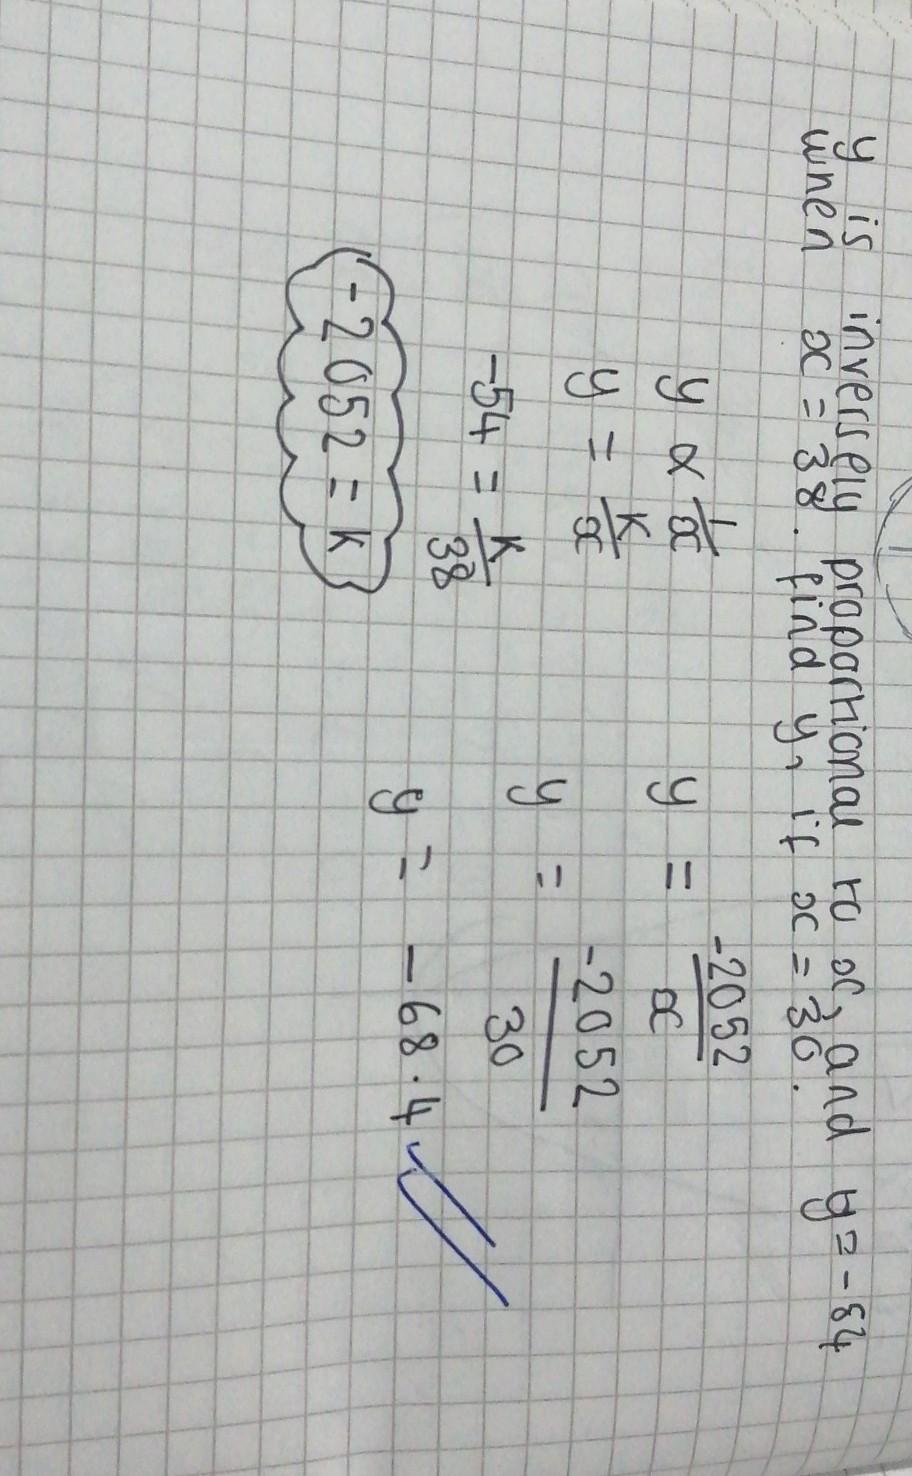 y is inversely proportional to x, and y = -54
when x = 38. find y, if x = 30.
y ∝ 1/x
y = k/x
-54 = k/38
-2052 = k
y = -2052/x
y = -2052/30
y = -68.4